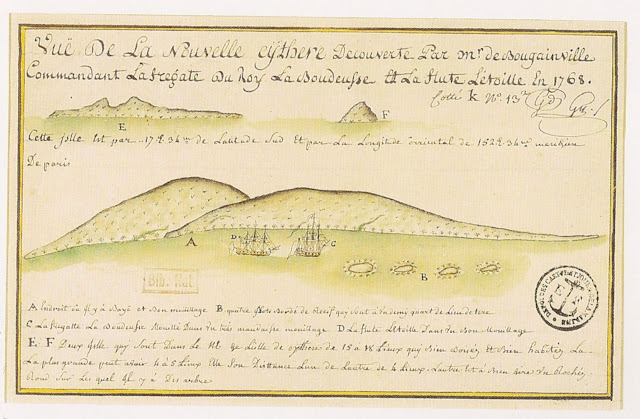 Vuë De La Nouvelle Cythere Decouverte Par Mr. de Bougainville
Commandant La fregate Du Roy La Boudeusse Et La flute Letoille En 1768.
Cotté K No. 13
E
F
Cette jsle Est par 17 34 de Latitude Sud Et par La Longitude orriental de 152 34 meridien
De paris
A
D
C
B
Bib. Nat.
A Endroit où jl y à Et Bon mouillage B quatre Bordé de Ressif quy sont à un demy quart de Lieu de tere
C La fregatte La Boudeusse Mouillé Dans un très mauvaisse mouillage D La flute Letoille Dans un Bon Mouillage
E F Deux jslle quy sont Dans Le de Lislle de Cythere de 15 a 18 Lieux quy Bien Boisés Et Bien habitéz La
La plus grande peut avoir 4 à 5 Lieux Elle Son Distance Lune de Lautre de 4 Lieux Lautre Est à Rien dires Un Rochez
Rond Sur Les quel jl y à Des arbre